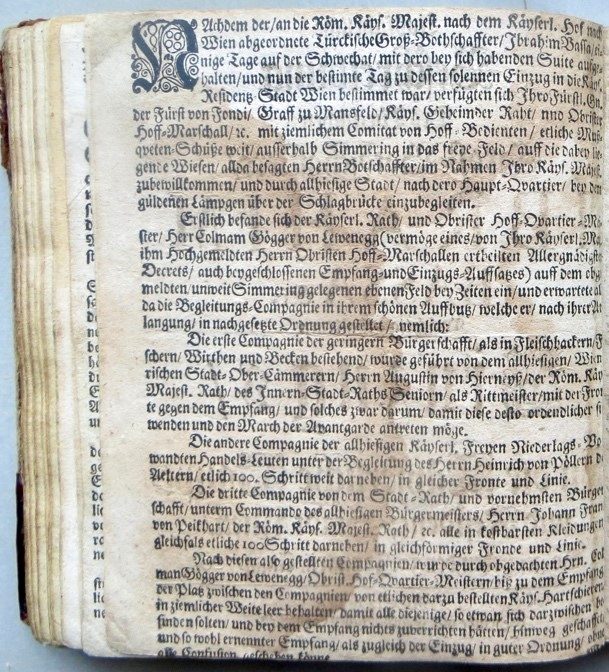 NAchdem der/an die Röm. Käys. Majest. nach dem Käyserl. Hof nach
Wien abgeordnete Türckische Groß-Bothschaffter/Ibrahim Bassa/
nige Tage auf der Schwechat/ mit dero bey sich habenden Suite
halten/und nun der bestimte Tag zu dessen solennen Einzug in die Käys.
Residentz Stadt Wien bestimmet war/ verfügten sich Ihro Fürstl. Gn.
der Fürst von Fondi/ Graff zu Mansfeld/ Käys. Geheimder Raht/ nno Obrister
Hoff-Marschall/ ꝛc. mit ziemlichem Comitat von Hoff-Bedienten/ etliche Muß-
qveten-Schüße weit/ ausserhalb Simmering in das freye Feld/ auff die dabey lie-
gende Wiesen/ allda besagten Herrn Botschaffter/im Nahmen Ihro Käys. Majest.
zubewillkommen/ und durch allhiesige Stadt/ nach dero Haupt-Qvartier/ bey dem
güldenen Lämpgen über der Schlagbrücke einzubegleiten.
Erstlich befande sich der Käyserl. Rath/ und Obrister Hoff-Qvartier-Mei-
ster/ Herr Colmam Gögger von Lewenegg (vermöge eines/von Ihro Käyserl. Ma
ihm Hochgemeldten Herrn Obristen Hoff-Marschallen ertheilten Allergnädigsten
Decrets/ auch beygeschlossenen Empfang-und Einzugs-Auffsatzes) auff dem obge
meldten/unweit Simmering gelegenen ebenen Feld bey Zeiten ein/ und erwartete al
da die Begleitungs-Compagnie in ihrem schönen Auffbutz/ welche er/ nach ihrer An
langung/ in nachgesetzte Ordnung gestellet/ nemlich:
Die erste Compagnie der geringern Bürgerschafft/ als in Fleischhackern/ F
schern/ Wirthen und Becken bestehend/ wurde geführt von dem allhiesigen/ Wien
rischen Stadt-Ober-Cämmerern/ Herrn Augustin von Hierneyß/ der Röm. Käy
Majest. Rath/ des Innern-Stadt-Raths Seniorn/ als Rittmeister/ mit der Fron
te gegen dem Empfang/ und solches zwar darum/ damit diese desto ordendlicher si
wenden und den March der Avantgarde antreten möge.
Die andere Compagnie der allhiesigen Käyserl. Freyen Niederlags-Ve
wandten Handels-Leuten unter der Begleitung des Herrn Heinrich von Pöllern d
Aeltern/ etlich 100. Schritt weit darneben/ in gleicher Fronte und Linie.
Die dritte Compagnie von dem Stadt-Rath/ und vornehmsten Bürger
schafft/ unterm Commando des allhiesigen Bürgermeisters/ Herrn Johann Fran
von Peikhart/ der Röm. Käys. Majest. Rath/ ꝛc. alle in kostbarsten Kleidungen
gleichfals etliche 100 Schritt darneben/ in gleichförmiger Fronde und Linie.
Nach diesen also gestellten Compagnien/ wurde durch obgedachten Hrn. Col
man Gögger von Lewenegg/ Obrist. Hof-Qvartier-Meistern/ biß zu dem Empfang
der Platz zwischen den Compagnien/ von etlichen darzu bestellten Käys. Hartschieren
in ziemlicher Weite leer behalten/ damit alle diejenige/ so etwan sich darzwischen be
finden solten/ und bey dem Empfang nichts zuverrichten hätten/ hinweg geschaffet
und so wohl ernennter Empfang/ als zugleich der Einzug/ in guter Ordnung/ ohne
alle Confusion geschehen könne